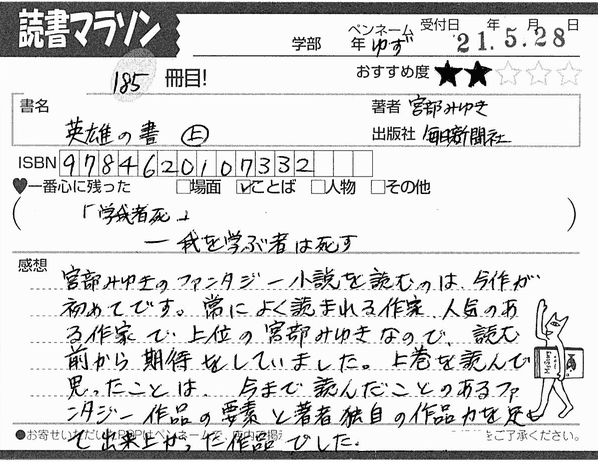 読書マラソン
学部 年 ペンネーム ゆず 受付日 年 月 日
'21.5.28
185 冊目!
おすすめ度 ★★☆☆☆
書名 英雄の書 上
著者 宮部みゆき
出版社 毎日新聞社
ISBN 9784620107332
♥一番心に残った □場面 ☑ことば □人物 □その他
「学我者死」
― 我を学ぶ者は死す
感想
宮部みゆきのファンタジー小説を読むのは、今作が
初めてです。常によく読まれる作家、人気のあ
る作家で、上位の宮部みゆきなので、読む
前から期待をしていました。上巻を読んで
思ったことは、今まで読んだことのあるファ
ンタジー作品の要素と著者独自の作品力を足し
て出来上がった作品でした。
●お寄せいただいたPOPはペンネームで、 をご了承ください。